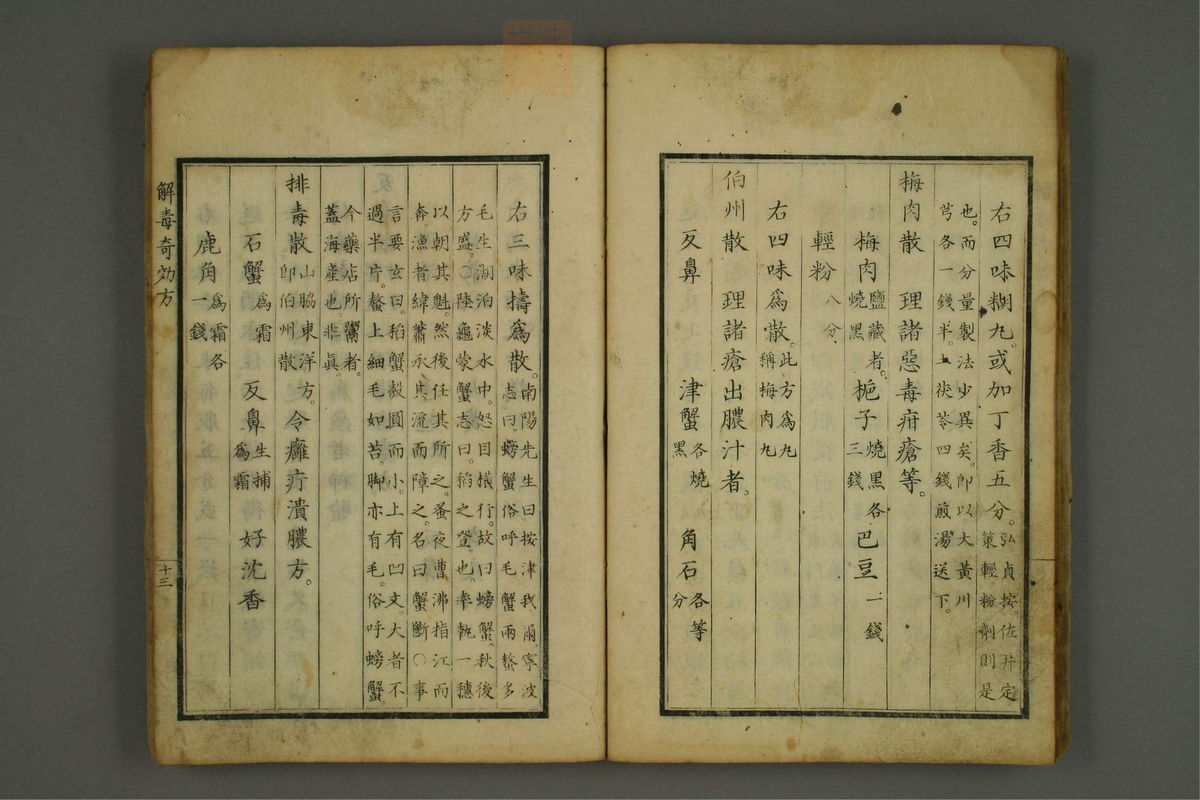 右四味糊丸。或加丁香五分。弘貞按。佐井定策輕粉劑則是
也。而分量製法少異矣。卽以大黃川芎各一錢半。土茯苓四錢煎湯送下。
梅肉散 理諸惡毒疳瘡等。
梅肉鹽藏者。燒黑 梔子燒黑各三錢 巴豆一錢
輕粉八分、
右四味爲散。此方爲丸稱梅肉丸
伯州散 理諸瘡出膿汁者。
反鼻 津蟹各燒黑 角石各等分
右三味擣爲散。南陽先生曰按津我滿、寧波志曰。螃蟹俗呼毛蟹兩螯多
毛生湖泊淡水中。怒目橫行。故曰螃蟹。秋後方盛。陸龜蒙蟹志曰。稻之登也。率執一穗
以朝其魁。然後任其所之。蚤夜曹沸指江而奔漁者緯蕭承其流而障之。名曰蟹斷〇事
言要玄曰。稻蟹殼圓而小。上有凹文。大者不過半片。螯上細毛如苔。脚亦有毛。俗呼螃蟹
今藥店所鬻者。蓋海產也。非眞。
排毒散山脇東洋方。卽伯州散 令癰疔潰膿方。
石蟹爲霜 反鼻生捕爲霜 好沈香
鹿角爲霜各一錢
解毒奇効方
十三